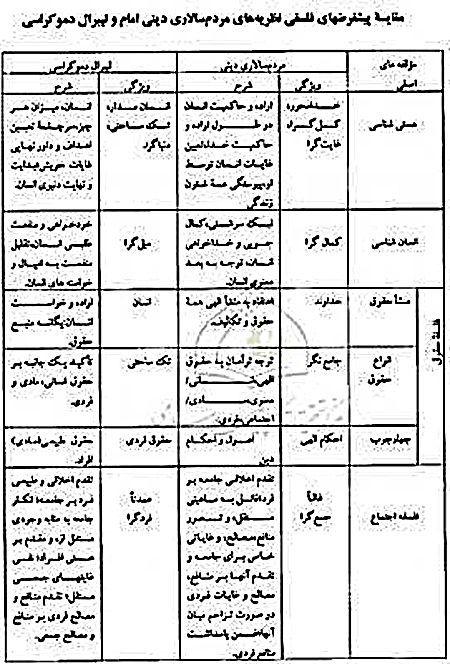 مقایسهٔ پیشفرضهای فلسفی نظریه‌های مردم‌سالاری دینی امام و لیبرال دموکراسی
مؤلفه های
اصلی
مردم‌سالاری دینی
لیبرال دموکراسی
ویژگی
شرح
ویژگی
شرح
هستی شناسی
خدامحور،
کل‌گرا،
غایت‌گرا
اراده و حاکمیت انسان
در طول اراده و
حاکمیت خدا،تعیین
غایات انسان توسط
او،پیوستگی همهٔ شئون
زندگی
انسان مدار،
تک ساحتی،
دنیاگرا
انسان، میزان هر
چیز،مرجع
اهداف و داور نهایی
غایات خویش،بدایت
و نهایت دنیوی انسان.
انسان شناسی
کمال گرا
نیک سرشتی،کمال
جویی و خداخواهی
انسان، توجه به بعد
معنوی انسان.
میل‌گرا
خودخواهی و منفعت
طلبی انسان،تقلیل
منفعت به امیال و
خواسته های انسان.
فلسفهٔ حقوق
منشأ حقوق
خداوند
اعتقاد به منشأ الهی همهٔ
حقوق و تکالیف.
انسان
اراده و خواست
انسان،یگانه منبع
حقوق.
انواع
حقوق
جامع نگر
توجه توأمان به حقوق
الهی/انسانی،
معنوی/مادی،
اجتماعی/فردی.
تک ساحتی
تأکید یک جانبه بر
حقوق انسانی،مادی و
فردی.
چهارچوب
احکام الهی
اصول و احکام
دین
حقوق فردی
حقوق طبیعی(مادی)
افراد.
فلسفه اجتماع
غالباً
جمع‌گرا
تقدم اخلاقی جامعه بر
فرد،قائل به
مستقل، و تصور
منافع،مصالح، و غایاتی
خاص برای جامعه و
تقدم آنها بر منافع،
مصالح و غایات فردی
در صورت تزاحم میان
آنها،ضمن پاسداشت
منافع فردی.
عمدتاً
فردگرا
تقدم اخلاقی و طبیعی
فرد بر جامعه؛ انکار
جامعه به مثابه وجودی
مستقل از و مقدم بر
افراد؛ نفی
غایتهای جمعی
مستقل؛ تقدم منافع و
مصالح فردی بر منافع
و مصالح جمعی.